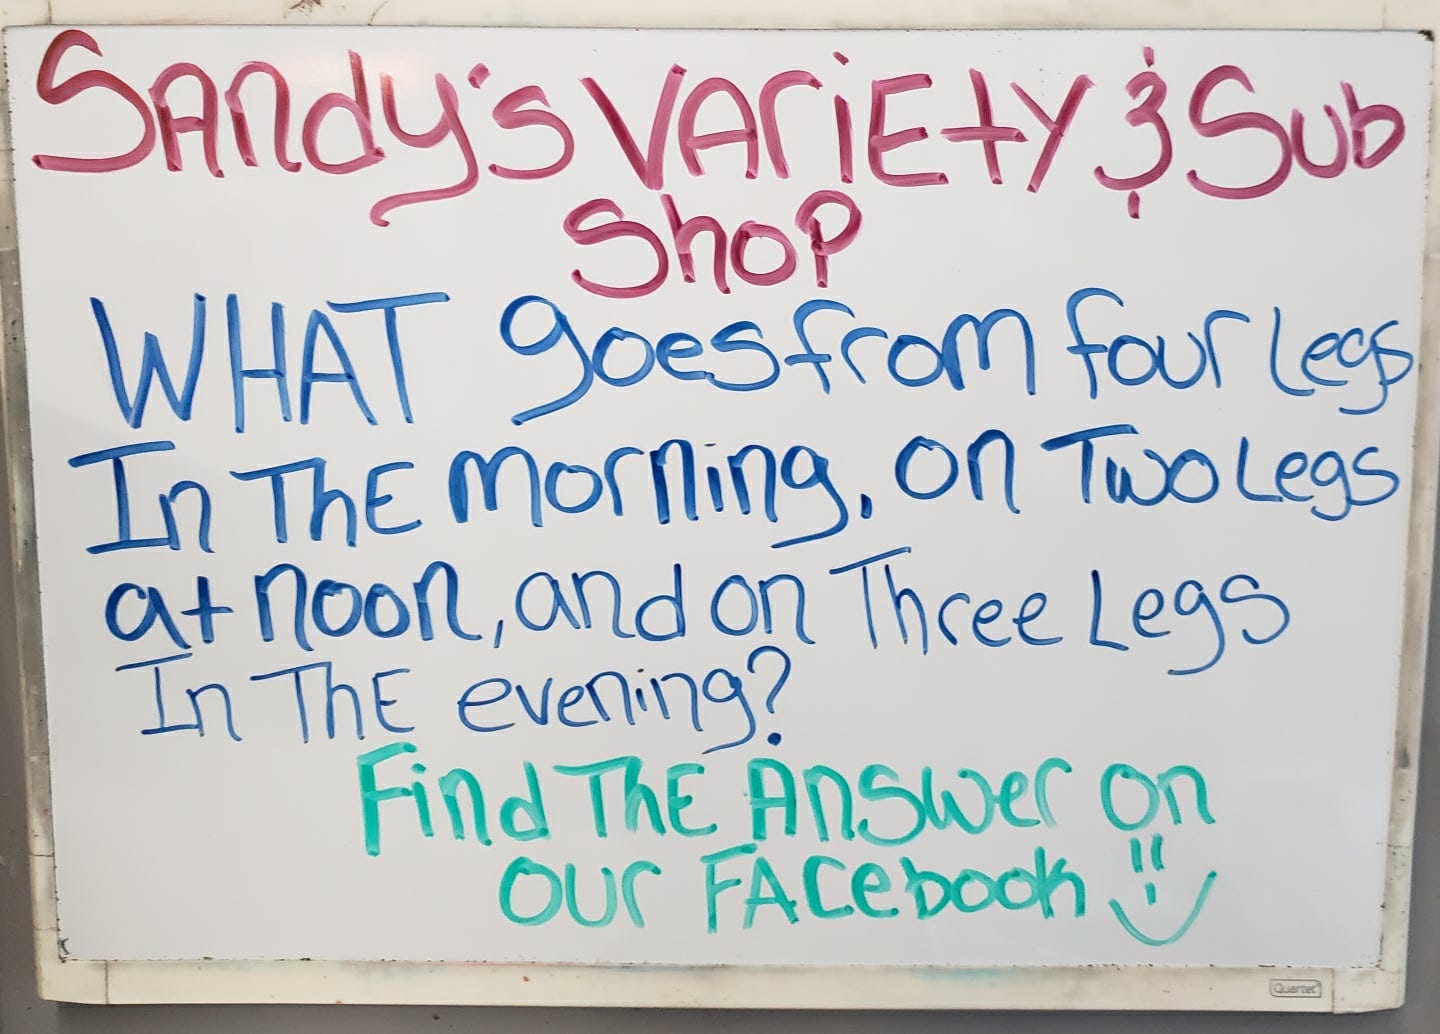 Sandy's Variety & Sub
Shop
WHAT goes from four Legs
In The morning, on Two Legs
at noon, and on Three Legs
In The evening?
Find The Answer on
our Facebook
Quartet